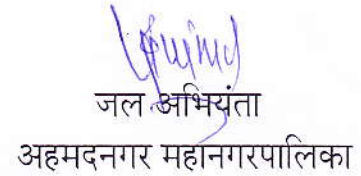 जल अभियंता
अहमदनगर महानगरपालिका